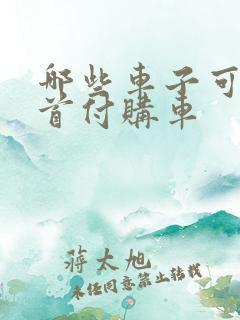 哪些車子可
首付購車
蒋太旭
未经同意禁止转载